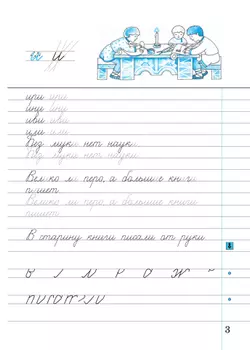 и и
ири ири
ини ини
иви иви
или или
Без муки нет наук.
Без муки нет наук.
Велико ли перо, а большие книги
пишет.
Велико ли перо, а большие книги
пишет.
В старину книги писали от руки.
3